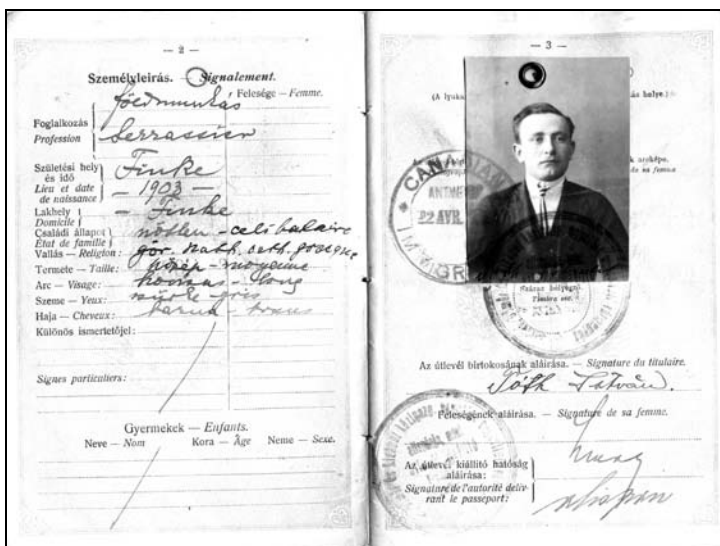 — 2 —
Személyleirás. — Signalement.
Felesége — Femme.
Foglalkozás
Profession
földmunkás
Születési hely
és idő
Lieu et date
de naissance
Finke
— 1903 —
Lakhely
Domicile
— Finke
Családi állapot
État de famille
nőtlen - celibataire
Vallás — Religion:
gör. kath. cath. grecque
Termete — Taille: közép - moyenne
Arc — Visage: hosszas - long
Szeme — Yeux: szürke - gris
Haja — Cheveux: barna - bruns
Különös ismertetőjel:
Signes particuliers:
Gyermekek — Enfants.
Neve — Nom Kora — Âge Neme — Sexe.
— 3 —
(A lyuka
ás helye.)
k arcképe.
de sa femme
CANADIAN
ANTWE
22 AVR.
IMMIGR
Száraz bélyegző.
Timbre sec.
Az útlevél birtokosának aláirása. — Signature du titulaire.
Tóth István.
Feleségének aláirása. — Signature de sa femme.
Az útlevél kiállító hatóság
aláirása:
Signature de l'autorité déliv-
rant le passeport: